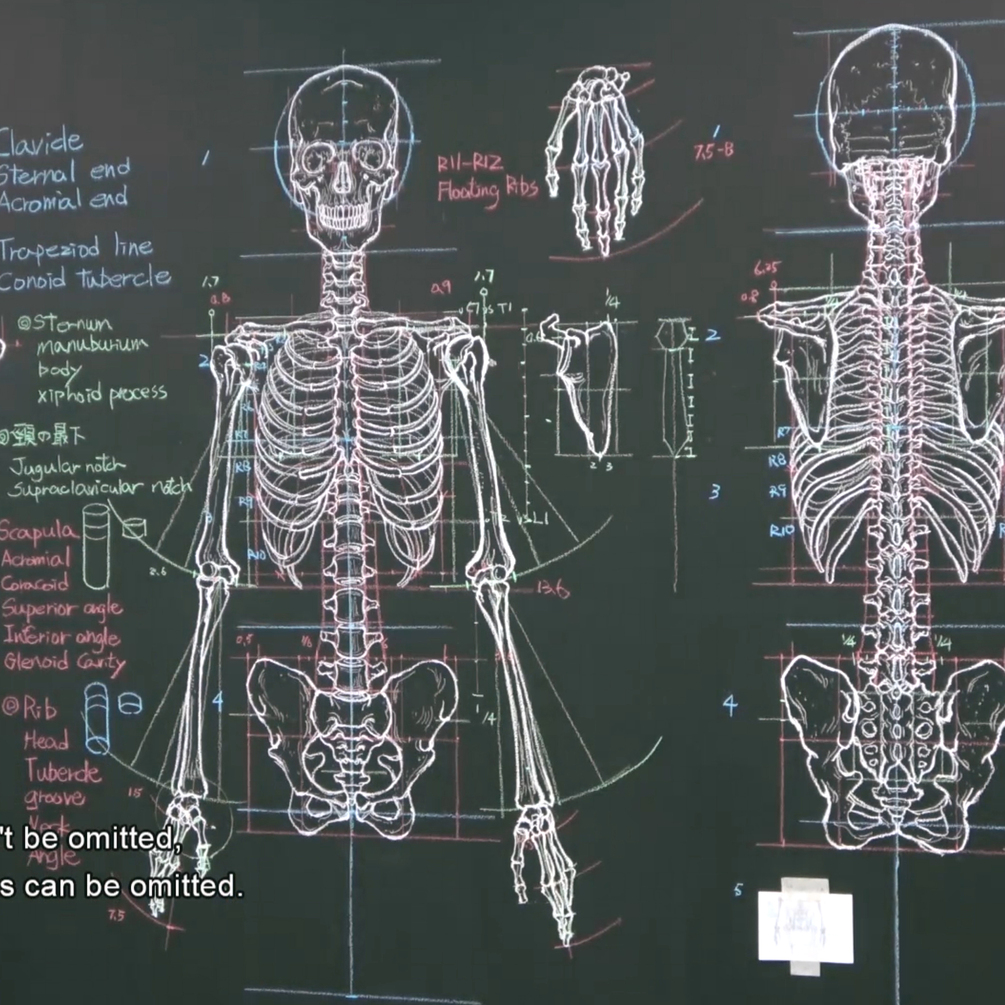 Clavicle
Sternal end
Acromial end
Trapeziod line
Conoid tubercle
@Sternum
manuburium
body
xiphoid process
の最下
Jugular notch
Supraclavicular notch
Scapula
Acromial
Coracoid
Superior angle
Inferior angle
Glenoid Cavity
©Rib
Head
Tubercle
groove
Neck
Angle
't be omitted,
s can be omitted.
R11-R12
Floating Ribs
1
1
7.5-B
1.7
0.8
0.9
1.7
C7 vs T1
1/4
6.25
0.8
1/4
2
2
R7
R8
R9
R10
R7
R8
R9
R10
2 3
3
3
2.6
13.6
0.5
4
1/4
1/4
1/4
4
1.5
7.5
5